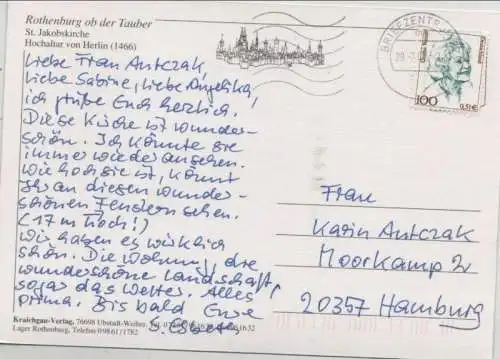 Rothenburg ob der Tauber
St. Jakobskirche
Hochaltar von Herlin (1466)
Liebe Frau Antczak,
liebe Sabine, liebe Angelika,
ich grüße Euch herzlich.
Diese Kirche ist wunder-
schön. Ich könnte sie
immer wieder ansehen.
Wie hoch sie ist, könnt
Ihr an diesen wunder-
schönen Fenstern sehen.
(17 m hoch!)
Wir haben es wirklich
schön. Die Wohnung, die
wunderschöne Landschaft,
sogar das Wetter. Alles
prima. Bis bald Eure
Kraichgau-Verlag, 76698 Ubstadt-Weiher, Tel.
Lager Rothenburg, Telefon 09861/1782
BRIEFZENTR
100
0,51€
Frau
Karin Antczak
Moorkamp 2
20357 Hamburg